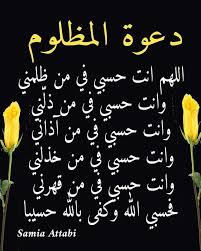 دعوة المظلوم
اللهم انت حسبي في من ظلمني
وانت حسبي في من ذلّني
وانت حسبي في من آذاني
وانت حسبي في من خذلني
وانت حسبي في من قهرني
فحسبي الله وكفى بالله حسيبا
Samia Attabi